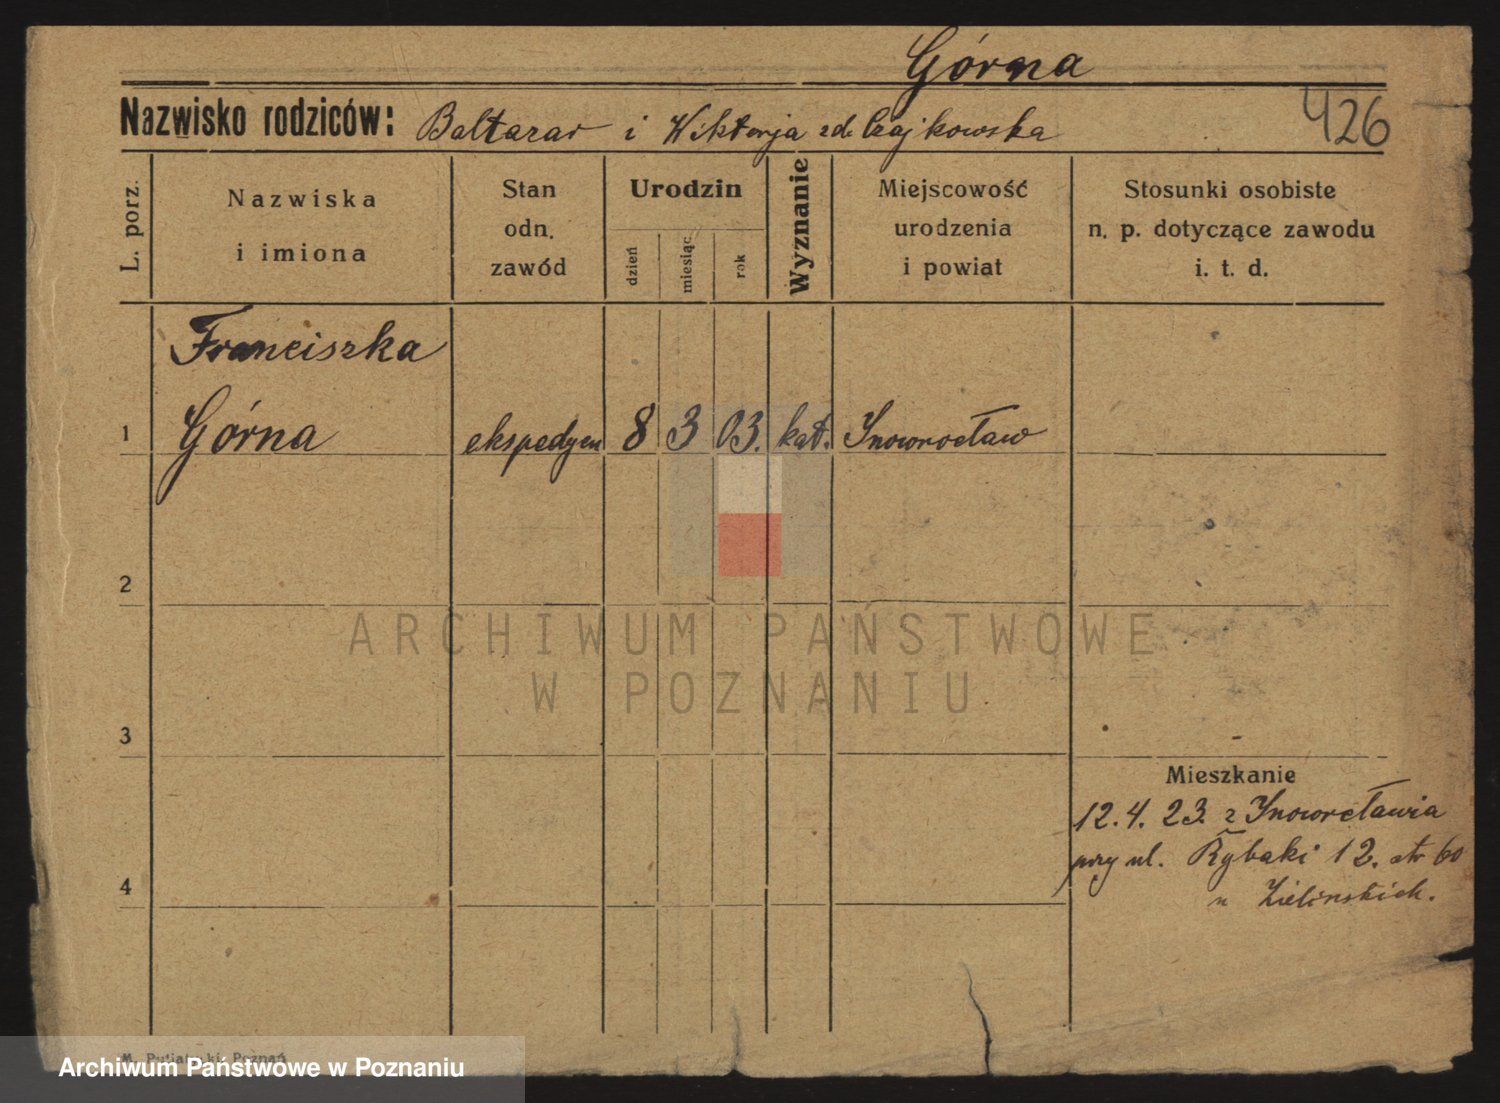 Górna
Nazwisko rodziców: Baltazar i Wiktorja zd. Czajkowska
426
L. porz.
Nazwiska
i imiona
Stan
odn.
zawód
Urodzin
dzień
miesiąc
rok
Wyznanie
Miejscowość
urodzenia
i powiat
Stosunki osobiste
n. p. dotyczące zawodu
i. t. d.
Franciszka
1 Górna ekspedjen 8 3 03. kat. Inowrocław
2
ARCHIWUM PAŃSTWOWE
W POZNANIU
3
Mieszkanie
12.4.23. z Inowrocławia
przy ul. Rybaki 12. str 60
4
u Zielinskich.
M. Putiatycki, Poznań
Archiwum Państwowe w Poznaniu